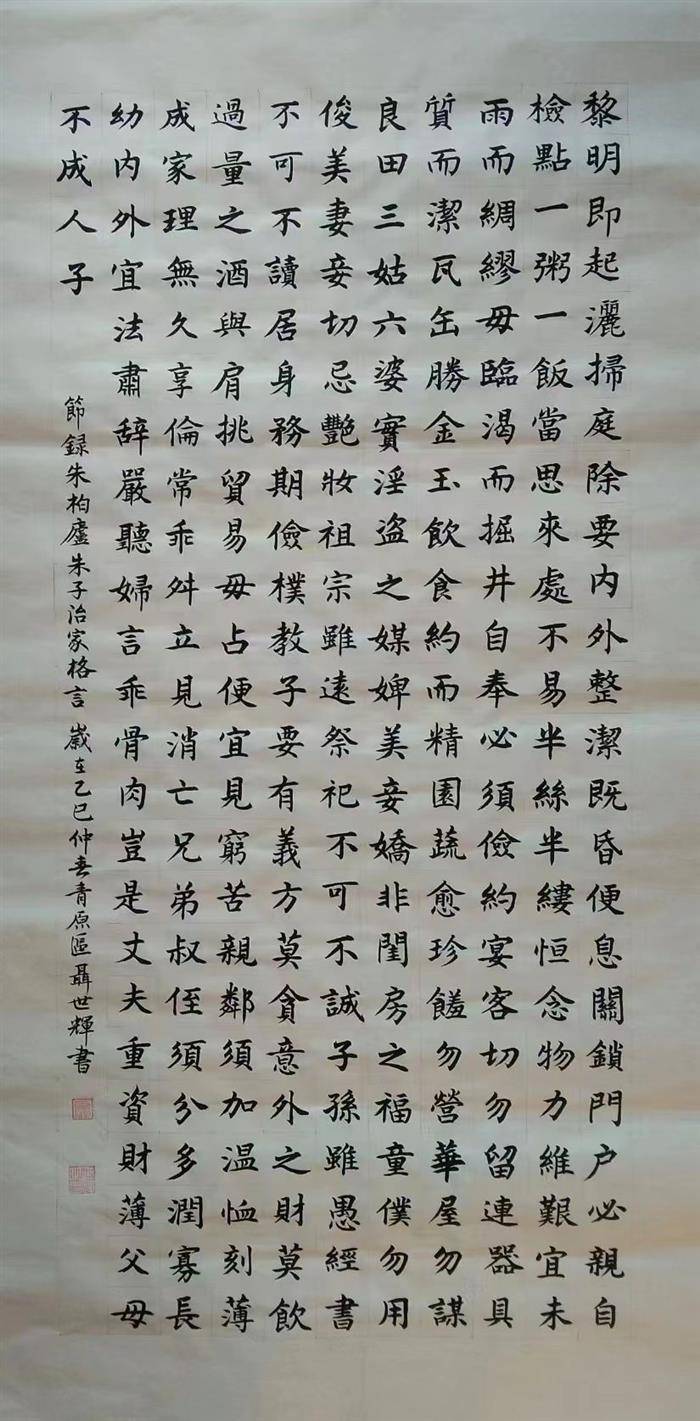 黎明即起灑掃庭除要内外整潔既昏便息關鎖門户必親自
檢點一粥一飯當思來處不易半絲半縷恒念物力維艱宜未
雨而綢繆毋臨渴而掘井自奉必須儉約宴客切勿留連器具
質而潔瓦缶勝金玉飲食約而精園蔬愈珍饈勿營華屋勿謀
良田三姑六婆實淫盗之媒婢美妾嬌非閨房之福童僕勿用
俊美妻妾切忌艷妝祖宗雖遠祭祀不可不誠子孫雖愚經書
不可不讀居身務期儉樸教子要有義方莫貪意外之財莫飲
過量之酒與肩挑貿易毋占便宜見窮苦親鄰須加温恤刻薄
成家理無久享倫常乖舛立見消亡兄弟叔侄須分多潤寡長
幼内外宜法肅辞嚴聽婦言乖骨肉豈是丈夫重資財薄父母
不成人子
節録朱柏廬朱子治家格言 歲在乙巳仲春青原區聶世輝書